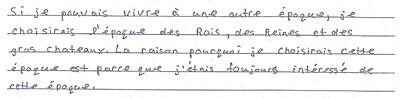 Si je pouvais vivre à une autre époque, je
choisirais l'époque des Rois, des Reines et des
gros chateaux. La raison pourquoi je choisirais cette
époque est parce que j'étais toujours intéressé de
cette époque.